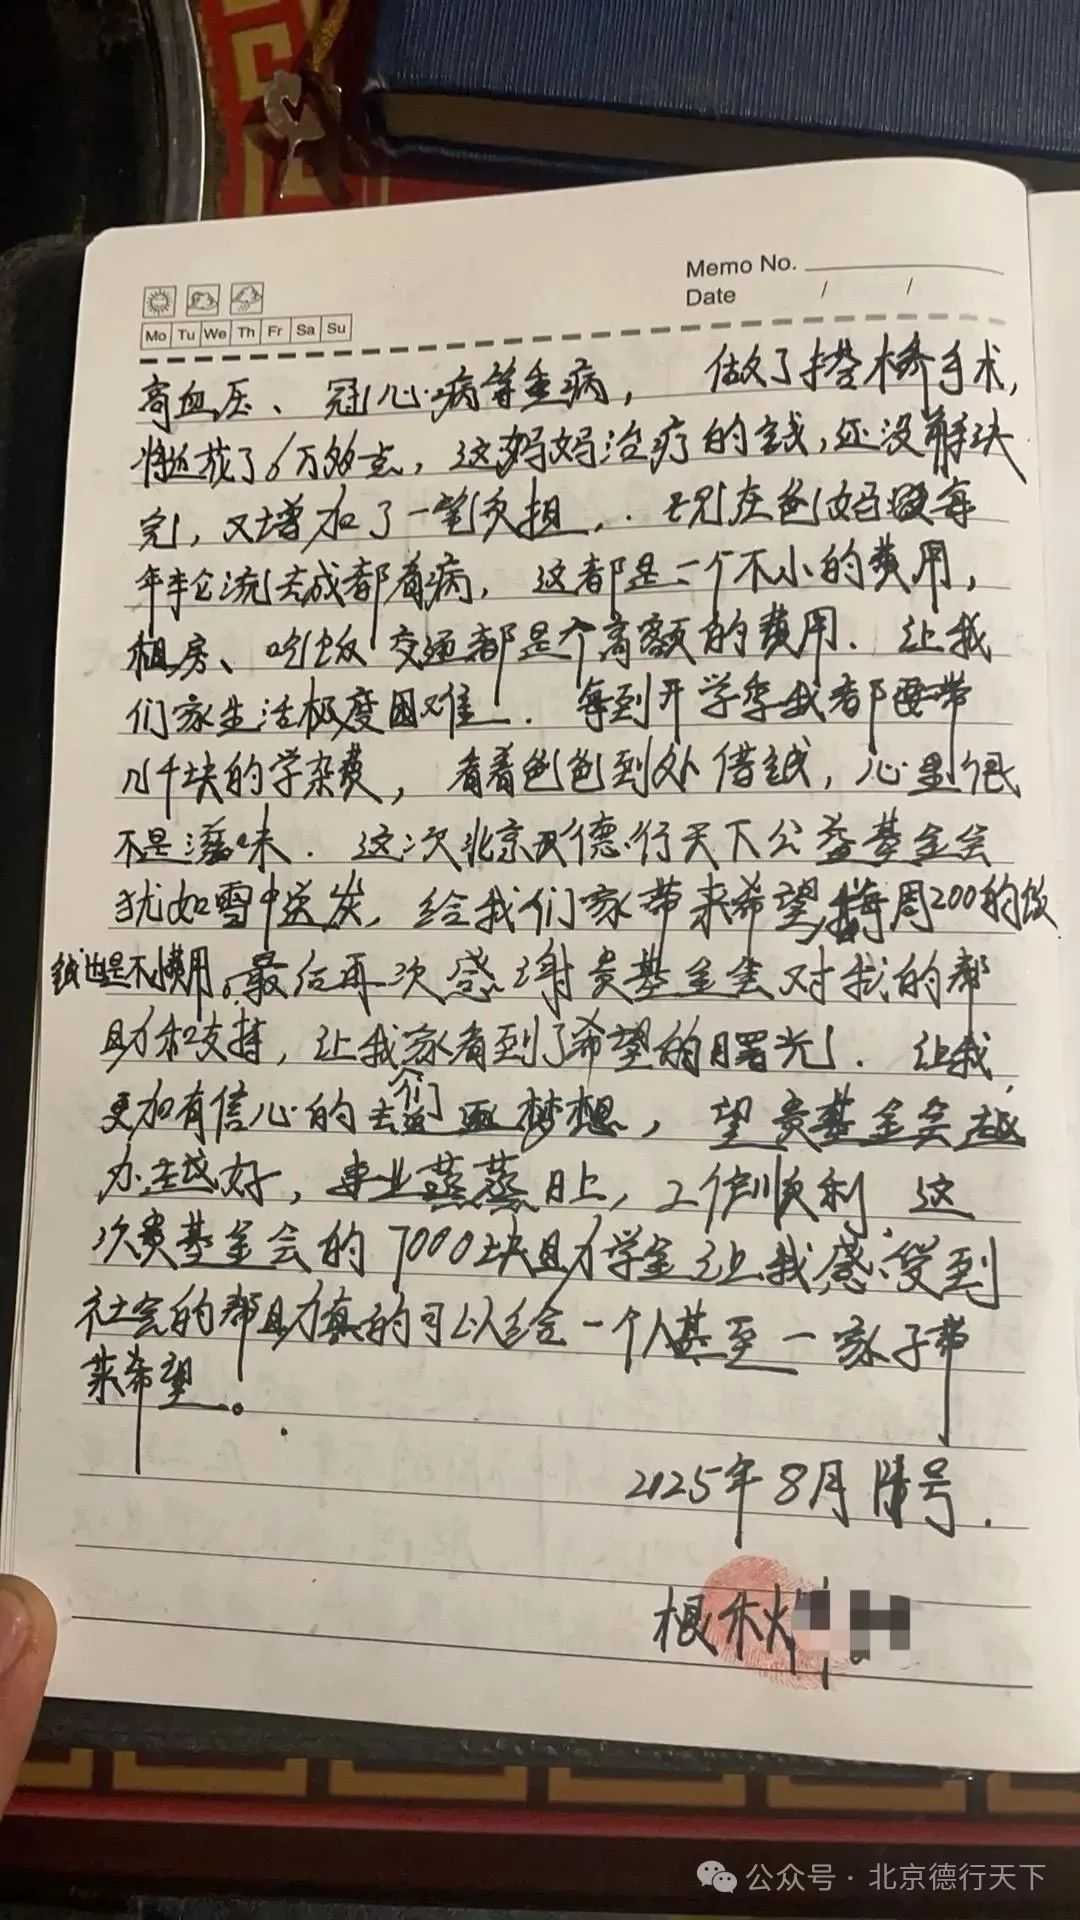 Memo No.
Date / /
Mo Tu We Th Fr Sa Su
高血压、冠心病等重病，做了搭桥手术，
将近花了6万多元，这妈妈治疗的钱，还没解决
完，又增加了一笔负担，. 现在爸妈每
年轮流去成都看病，这都是一个不小的费用，
租房、吃饭 交通都是个高额的费用. 让我
们家生活极度困难. 每到开学季我都要带
几千块的学杂费，看着爸爸到处借钱，心里很
不是滋味. 这次北京德行天下公益基金会
犹如雪中送炭，给我们家带来希望，每周200的
钱也是不费用。最后再次感谢贵基金会对我的帮
助和支持，让我家看到了希望的曙光！. 让我们
更加有信心的去追逐梦想，望贵基金会越
办越好，事业蒸蒸日上，工作顺利，这
次贵基金会的7000块助学金让我感受到
社会的帮助真的可以给一个人甚至一家子带
来希望。.
2025年8月 号.
根秋
公众号·北京德行天下